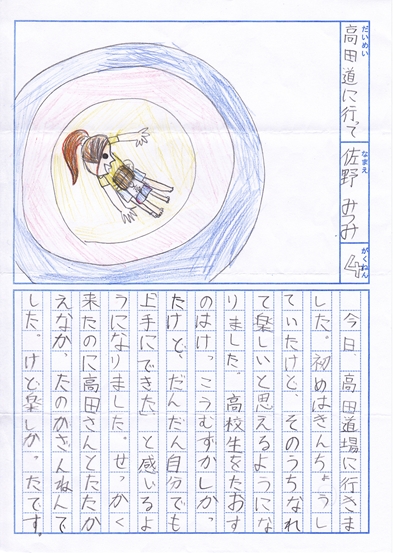 だいめい
高田道に行って
なまえ
佐野 みつみ
がくねん
4
今日、高田道場に行きま
した。初めはきんちょうし
ていたけど、そのうちなれ
て楽しいと思えるようにな
りました。高校生をたおす
のはけっこうむずかしかっ
たけど、だんだん自分でも
上手にできた」と感じるよ
うになりました。せっかく
来たのに高田さんとたたか
えなかったのがざんねんで
した。けど楽しかったです。